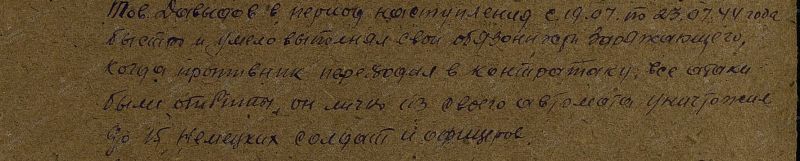 Тов. Давыдов в период наступления с 19.07. по 23.07.44 года
быстро и умело выполнял свои обязонности заряжающего,
когда противник переходил в контратаку, все атаки
были отбиты, он лично из своего автомата уничтожил
до 15 немецких солдат и офицеров.